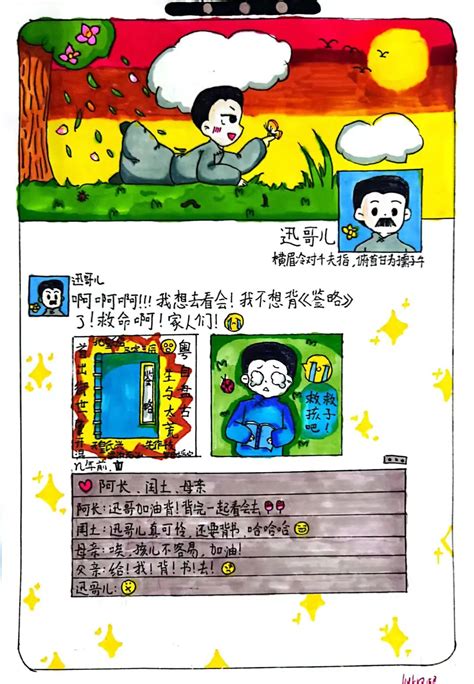 迅哥儿
横眉冷对千夫指,俯首甘为孺子牛
迅哥儿
啊啊啊!!!我想去看会!我不想背《鉴略》
了!救命啊!家人们!
粤自盘古
生于太荒
首出御世
鉴略
救救
孩子
吧!
九年前
阿长、闰土、母亲
阿长:迅哥加油背!背完一起看会去
闰土:迅哥儿真可怜,还要背书,哈哈哈
母亲:唉,孩儿不容易,加油!
父亲:给!我!背!书!去!
迅哥儿: